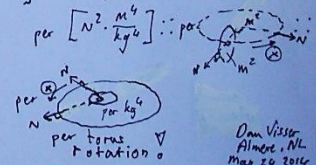 per [N² · m⁴/kg⁴] :: per
m²
N
m²
N
per ⊗ N
N
per kg⁴
per torus
rotation!
Dan Visser
Almere, NL
Mar 24 2014